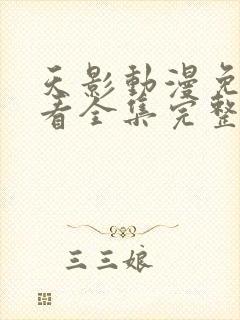 天影動漫免
看全集完整
三三娘